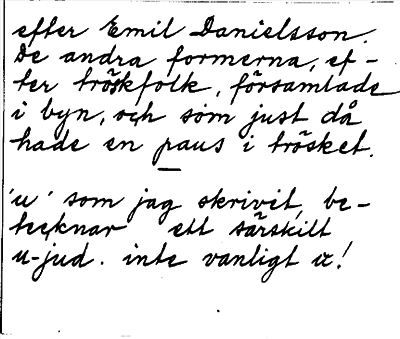 efter Emil Danielsson.
De andra formerna, ef-
ter tröskfolk, församlade
i byn, och som just då
hade en paus i trösket.
'u' som jag skrivit, be-
tecknar ett särskilt
u-jud. inte vanligt u!